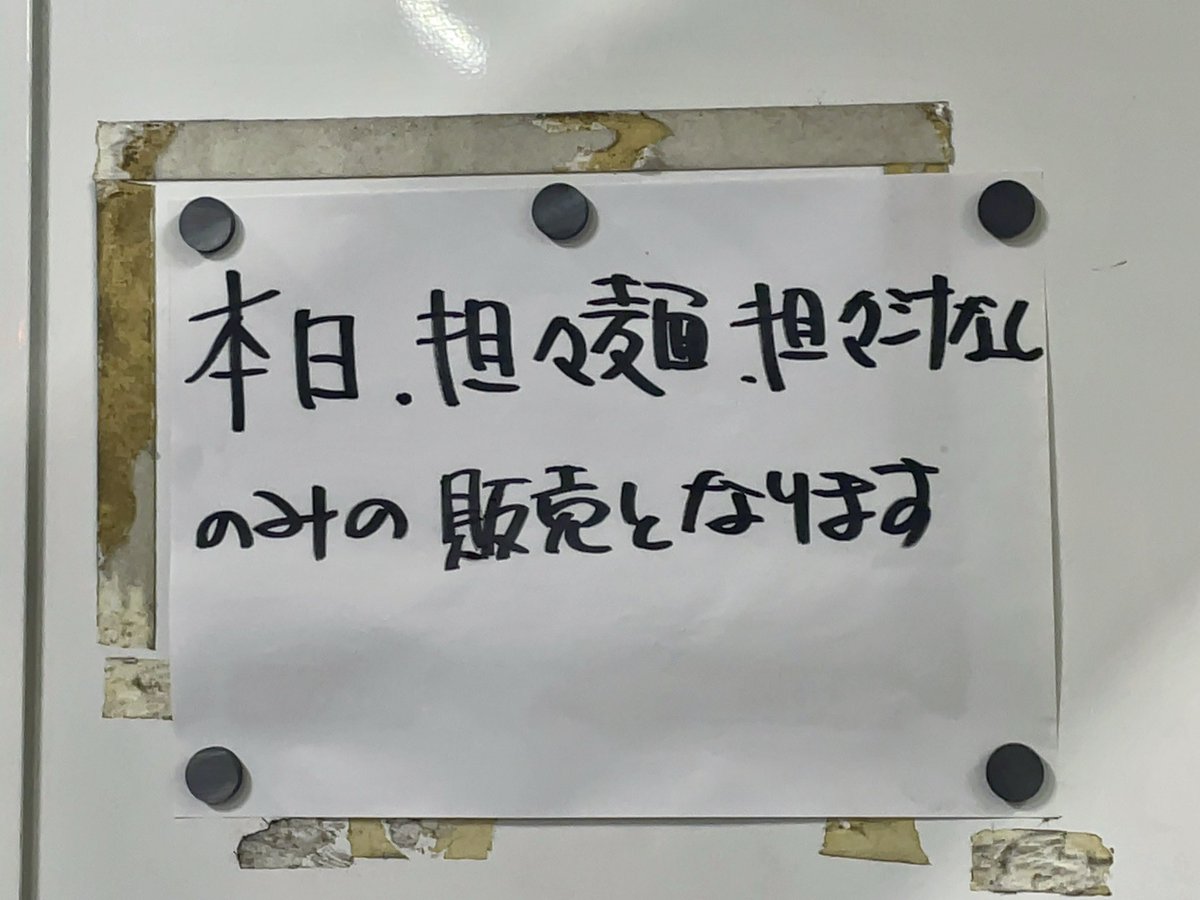 本日.担々麺.担々汁なし
のみの販売となります